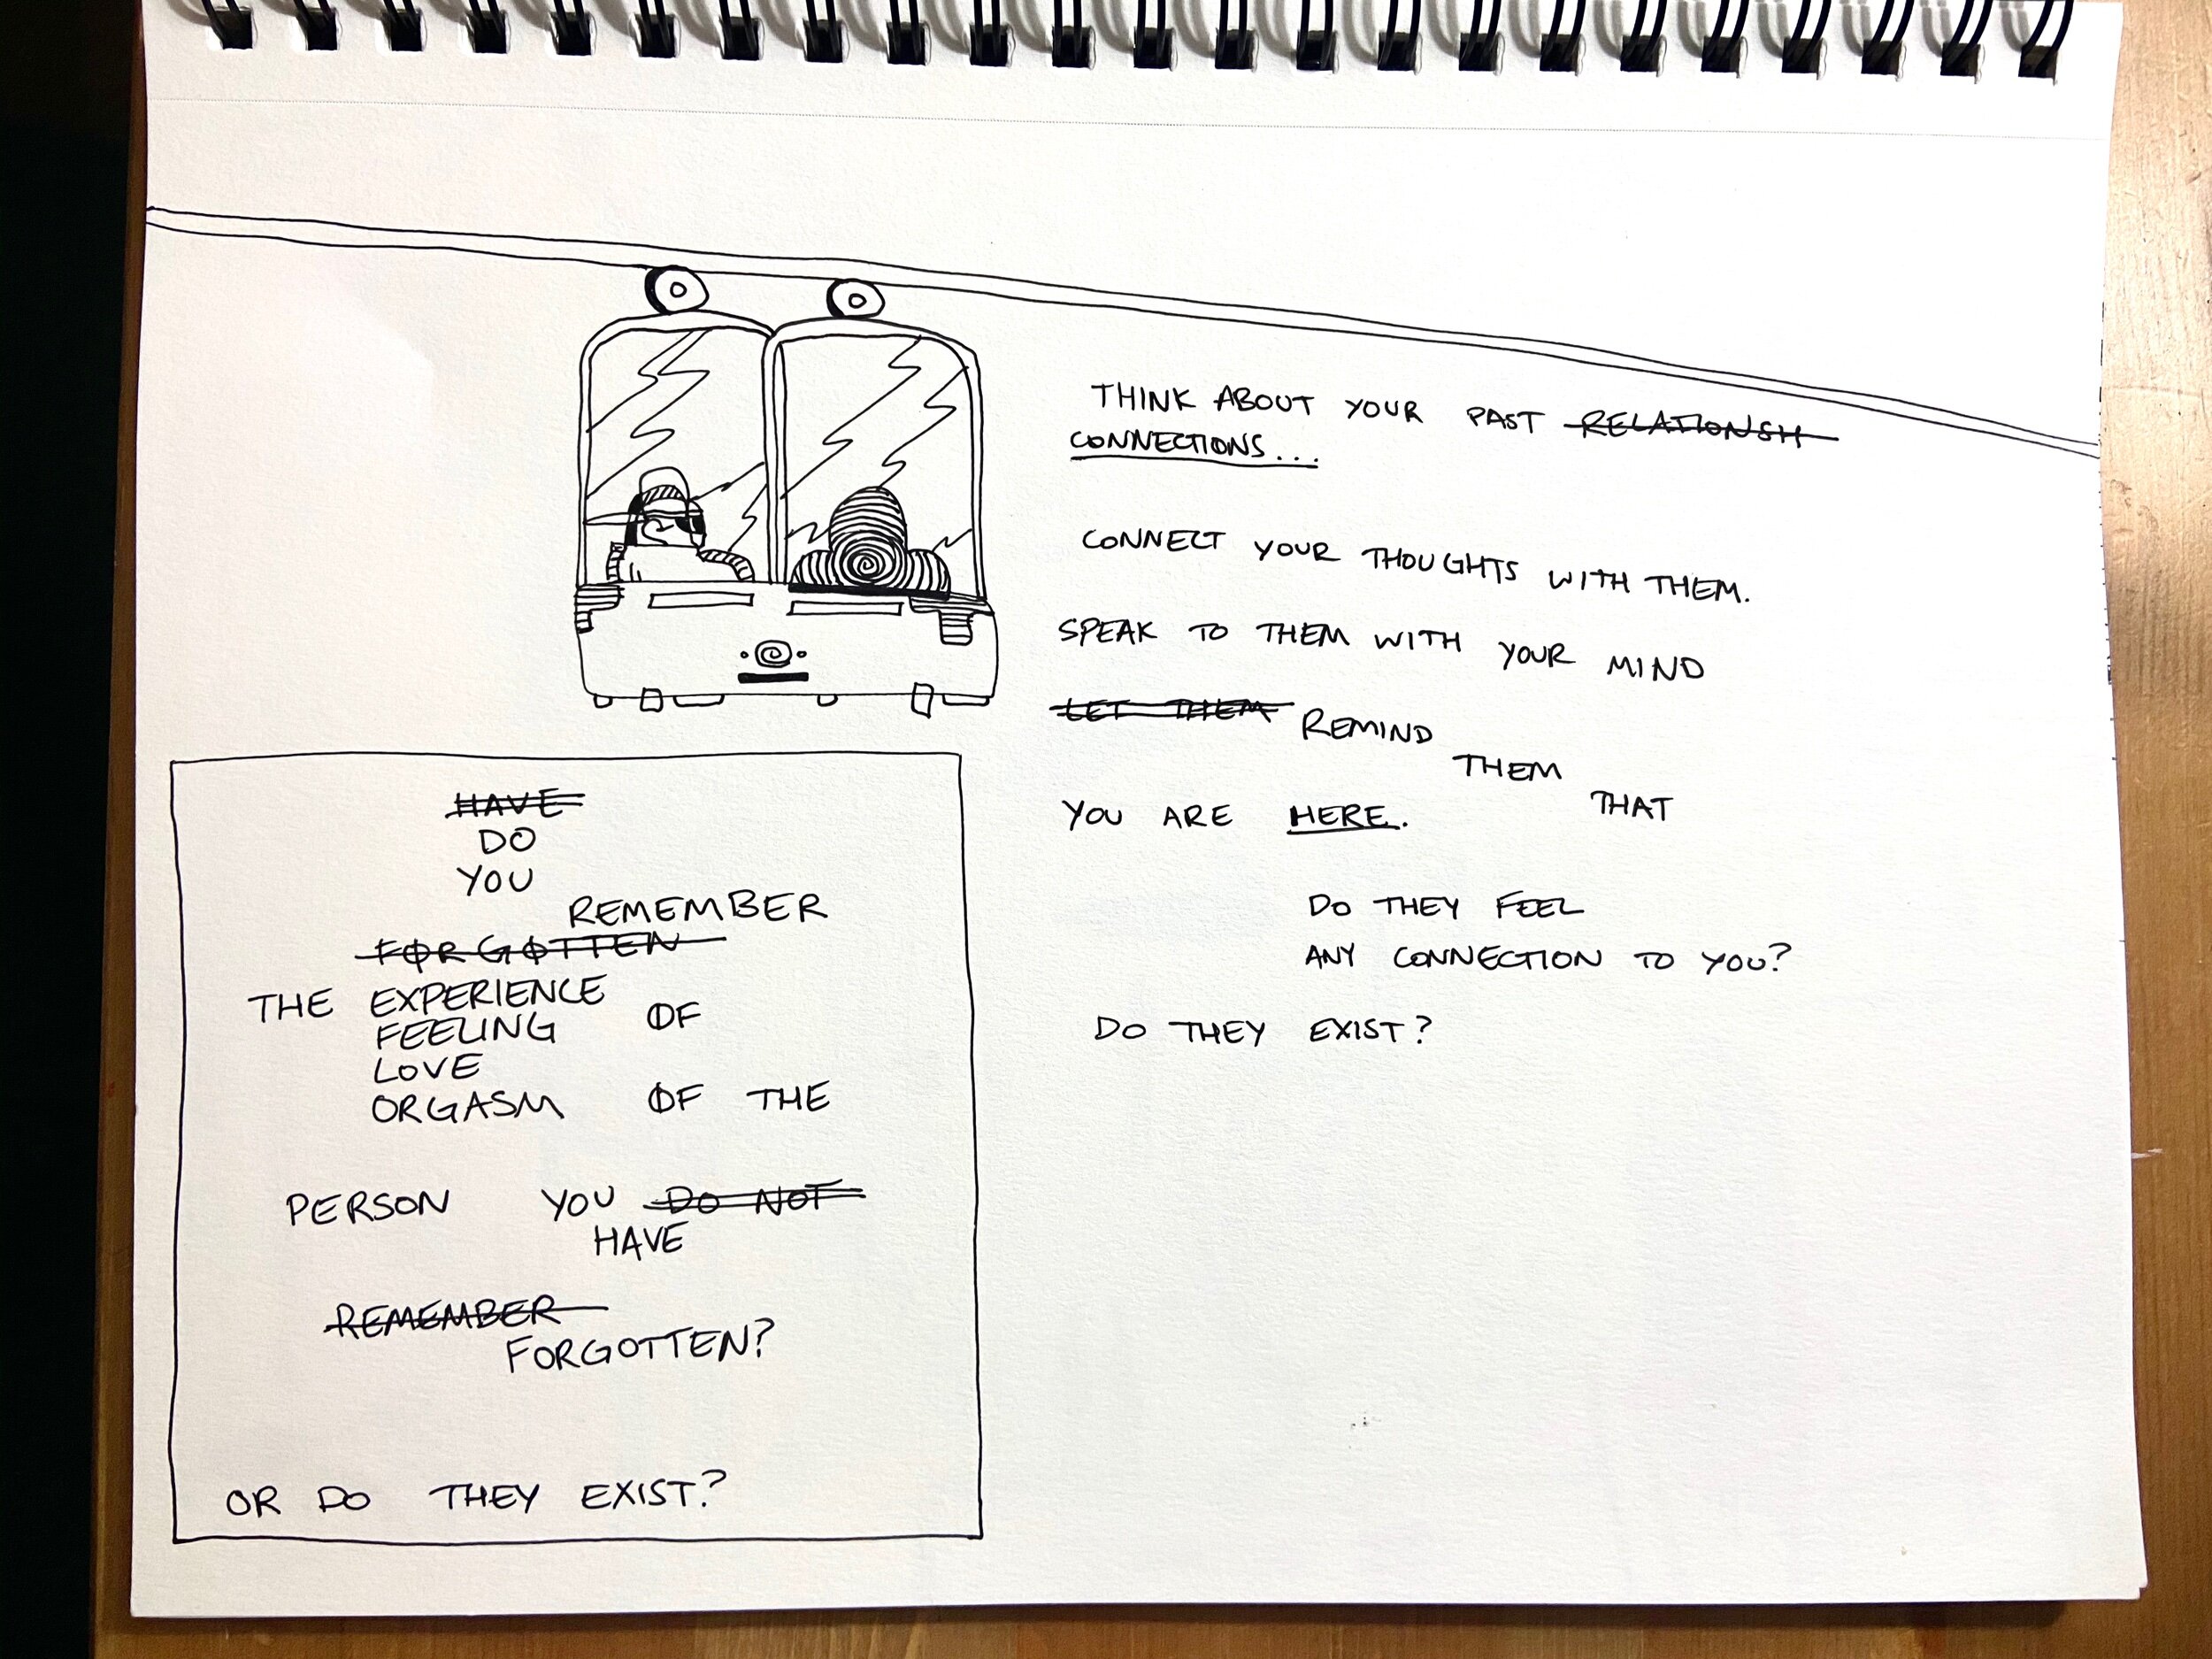 THINK ABOUT YOUR PAST RELATIONSH
CONNECTIONS...
CONNECT YOUR THOUGHTS WITH THEM.
SPEAK TO THEM WITH YOUR MIND
LET THEM REMIND
THEM
THAT
YOU ARE HERE.
DO THEY FEEL
ANY CONNECTION TO YOU?
DO THEY EXIST?
HAVE
DO
YOU
REMEMBER
FORGOTTEN
THE EXPERIENCE
FEELING OF
LOVE
ORGASM OF THE
PERSON YOU DO NOT
HAVE
REMEMBER
FORGOTTEN?
OR DO THEY EXIST?